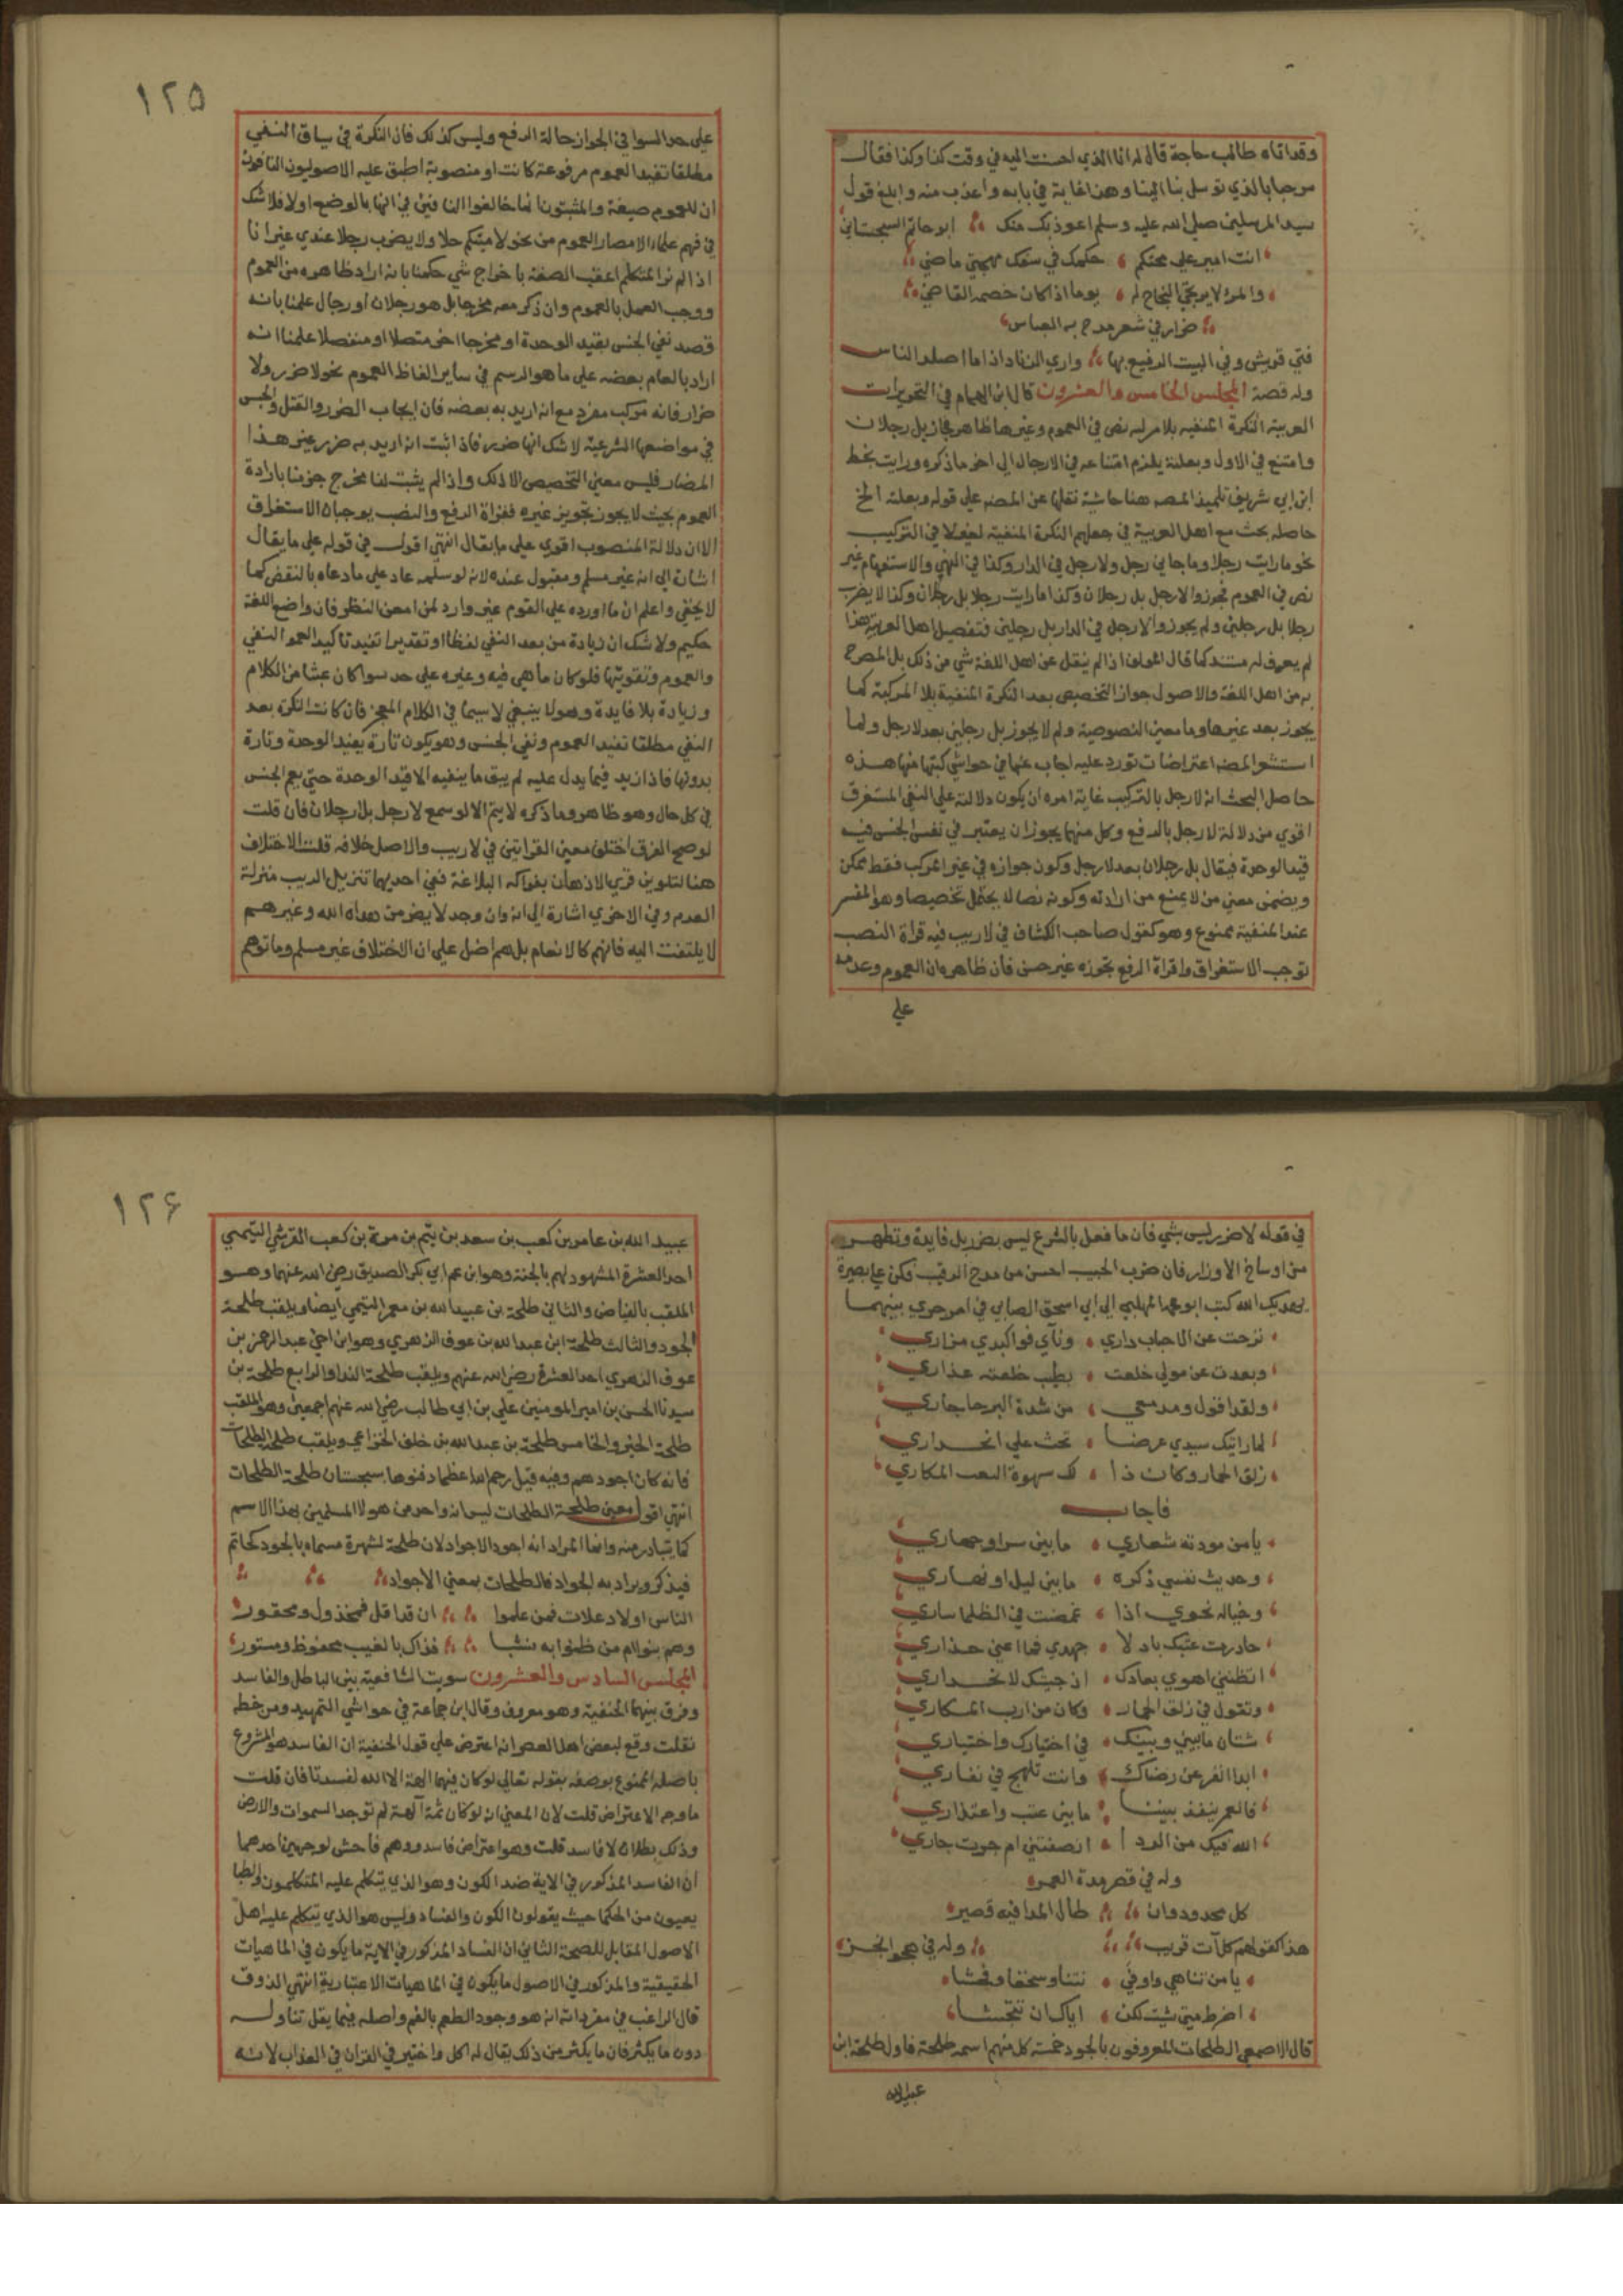 وقد اتاه طالب حاجة قال له انا الذي احسنت اليه في وقت كذا وكذا فقال
مرحبا بالذي توسل بنا الينا وهذا غاية في بابه واعذب منه وابلغ قول
سيد المرسلين صلي الله عليه وسلم اعوذ بك منك ابو حاتم السجستاني
انت امير علي محتكم حكمك في سفك مهجتي ماضي
والمرء لا يرتجي النجاح له يوما اذا كان خصمه القاضي
ضرار في شعر مدح به العباس
فتي قريش وفي البيت الرفيع بها واري الزناد اذا ما اصلد الناس
وله قصة المجلس الخامس والعشرون قال ابن الهمام في التحريرات
العربية النكرة المنفية بلا مركبه نص في العموم وغيرها ظاهر فجاز بل رجلان
وامتنع في الاول وبعلته يلزم امتناعه في الارجال الي اخر ما ذكره ورايت بخط
ابن ابي شريف تلميذ المصه هنا حاشية نقلها عن المصه علي قوله وبعلته الخ
حاصله بحث مع اهل العربية في جعلهم النكرة المنفية في التركيب
نحو ما رايت رجلا وما جاني رجل ولا رجل في الدار وكذا في النهي والاستفهام غير
نص في العموم فجوزوا لا رجل بل رجلان وكذا ما رايت رجلا بل رجلان وكذا لا يضرب
رجلا بل رجلين ولم يجوزوا لا رجل في الدار بل رجلين فتفصيل اهل العربية هذا
لم يعرف له مستند كما قال المولف اذا لم ينقل عن اهل اللغة شي من ذلك بل المصرح
به من اهل اللغة والاصول جواز التخصيص بعد النكرة المنفية بلا المركبة كما
يجوز بعد غيرها وما معني النصوصية ولم لا يجوز بل رجلين بعد لا رجل ولما
استشعر المصه اعتراضات تورد عليه اجاب عنها في حواشي كتبها منها هذه
حاصل البحث ان لا رجل بالتركيب غاية امره ان يكون دلالته علي النفي المستغرق
اقوي من دلالة لا رجل بالرفع وكل منهما يجوز ان يعتبر في نفس الجنس فيه
قيد الوحدة فيقال بل رجلان بعد لا رجل وكون جوازه في غير المركب فقط ممكن
ويضمن معني من لا يمنع من ارادته وكونه نصا لا يحتمل تخصيصا وهو المفسر
عند الحنفية ممنوع وهو كقول صاحب الكشاف في لا ريب فيه قراة النصب
توجب الاستغراق وقراة الرفع تجوزه غير حسن فان ظاهره ان العموم وعدمه
علي
١٢٥
علي حد السوا في الجواز حالة الرفع وليس كذلك فان النكرة في سياق النفي
مطلقا تفيد العموم مرفوعة كانت او منصوبة اطبق عليه الاصوليون النافون
ان للعموم صيغة والمثبتون انما خالفوا النافين في انها بالوضع اولا فلا شك
في فهم علماء الامصار العموم من نحو لا رجلا ولا يضرب رجلا عندي غير انا
اذا لم نر المتكلم اعقب الصفة باخراج شي حكمنا بانه اراد ظاهره من العموم
ووجب العمل بالعموم وان ذكر معه مخرجا بل هو رجلان او رجال علمنا بانه
قصد نفي الجنس بقيد الوحدة او مخرجا اخر متصلا او منفصلا علمنا انه
اراد بالعام بعضه علي ما هو الرسم في ساير الفاظ العموم نحو لا ضرر ولا
ضرار فانه مركب مفرد مع انه اريد به بعضه فان ايجاب الضرر والقتل والحبس
في مواضعها الشرعية لا شك انها ضرر فاذا اثبت انه اريد به ضرر غير هذا
المضار فليس معني التخصيص الا ذلك واذا لم يثبت لنا مخرج جزمنا بارادة
العموم بحيث لا يجوز تجويز غيره فقراة الرفع والنصب يوجبان الاستغراق
الا ان دلالة المنصوب اقوي علي ما يقال انتهي اقول في قوله علي ما يقال
اشارة الي انه غير مسلم ومقبول عنده لانه لو سلمه عاد علي مادعاه بالنقض كما
لا يخفي واعلم ان ما اورده علي القوم غير وارد لمن امعن النظر فان واضع اللغة
حكيم ولا شك ان زيادة من بعد النفي لفظا او تقديرا تفيد تاكيد العموم النفي
والعموم وتقويتها فلو كان ما هي فيه وغيره علي حد سوا كان عبثا من الكلام
وزيادة بلا فايدة وهو لا ينبغي لا سيما في الكلام المعجز فان كانت النكرة بعد
النفي مطلقا تفيد العموم ونفي الجنس وهو يكون تارة بقيد الوحدة وتارة
بدونها فاذا زيد فيما يدل عليه لم يبق ما ينفيه الا قيد الوحدة حتي يعم الجنس
في كل حال وهو ظاهر وما ذكره لا يتم الا لو سمع لا رجل بل رجلان فان قلت
لو صح الفرق اختلف معني القراتين في لا ريب والاصل خلافه قلت الاختلاف
هنا لتلوين قري الاذهان بفواكه البلاغة ففي احديهما تنزيل الريب منزلة
العدم وفي الاخري اشارة الي انه وان وجد لا يضر من هداه الله وغيرهم
لا يلتفت اليه فانهم كالانعام بل هم اضل علي ان الاختلاف غير مسلم وما توهم
في قوله لا ضرر ليس بشي فان ما فعل بالشرع ليس بضرر بل فايدة وتطهير
من اوساخ الاوزار فان ضرب الحبيب احسن من مدح الرقيب فكن علي بصيرة
يهديك الله كتب ابو محمد المهلبي الي ابي اسحق الصابي في امر جري بينهما
نزحت عن الاحباب داري وناي فوا كبدي مزاري
وبعدت عن مولي خلعت بطيب خلعته عذاري
ولقد اقول ومدمعي من شدة البرحا جاري
لما رايتك سيدي عرضا تحث علي انحداري
زلق الحمار وكان ذا لك سهوة المكاري
فاجاب
يا من مودته شعاري ما بين سر او جهاري
وحديث نفسي ذكره ما بين ليل او نهاري
وخياله نحوي اذا غمضت في الظلما ساري
حاذرت عتبك باذلا جهدي فما اغني حذاري
اتظنني اهوي بعادك اذ جيتك لانحداري
وتقول في زلق الحمار وكان من ارب المكاري
شتان ما بيني وبينك في اختيارك واختياري
ابدا افر عن رضاك وانت تلهج في نفاري
فالعمر ينفد بيننا ما بين عتب واعتذاري
الله فيك من الرد ا انصفتني ام جرت جاري
وله في قصر مدة العمر
كل محدود وان طال المدا فيه قصير
هذا كقولهم كل آت قريب وله في هجو ابخر
يا من تناهي واوفي نتنا وسخفا وفحشا
اضرط متي شئت لكن اياك ان تتجشا
قال الاصمعي الطلحات المعروفون بالجود خمسة كل منهم اسمه طلحة فاول طلحة ابن
عبيد الله
١٢۶
عبيد الله بن عامر بن كعب بن سعد بن تيم بن مرة بن كعب القرشي التيمي
احد العشرة المشهود لهم بالجنة وهو ابن عم ابي بكر الصديق رضي الله عنهما وهو
الملقب بالفياض والثاني طلحة بن عبيد الله بن معمر التيمي ايضا ويلقب طلحة
الجود والثالث طلحة ابن عبد الله بن عوف الزهري وهو ابن اخي عبد الرحمن بن
عوف الزهري احد العشرة رضي الله عنهم ويلقب طلحة الندا والرابع طلحة بن
سيدنا الحسن بن امير المومنين علي بن ابي طالب رضي الله عنهم اجمعين وهو الملقب
طلحة الخير والخامس طلحة بن عبد الله بن خلف الخزاعي ويلقب طلحة الطلحات
فانه كان اجودهم وفيه قيل رحم الله اعظما دفنوها بسجستان طلحة الطلحات
انتهي اقول معني طلحة الطلحات ليس انه واحد من هولا المسلمين بهذا الاسم
كما يتبادر منه وانما المراد انه اجود الاجواد لان طلحة لشهرة مسماه بالجود كحاتم
فيذكر ويراد به الجواد فالطلحات بمعني الاجواد
الناس اولاد علات فمن علموا ان قد اقل فمخذول ومحقور
وهم بنو الام من ظنوا به نشبا فذاك بالغيب محفوظ ومستور
المجلس السادس والعشرون سويت الشافعية بين الباطل والفاسد
وفرق بينهما الحنفية وهو معروف وقال ابن جماعة في حواشي التمهيد ومن خطه
نقلت وقع لبعض اهل العصر انه اعترض علي قول الحنفية ان الفاسد هو المشروع
باصله الممنوع بوصفه بقوله تعالي لو كان فيهما الهة الا الله لفسدتا فان قلت
ما وجه الاعتراض قلت لان المعني انه لو كان ثمة آلهة لم توجد السموات والارض
وذلك بطلان لا فاسد قلت وهو اعتراض فاسد ووهم فاحش لوجهين احدهما
ان الفاسد المذكور في الاية ضد الكون وهو الذي يتكلم عليه المتكلمون والطبا
يعيون من الحكما حيث يقولون الكون والفساد وليس هو الذي يتكلم عليه اهل
الاصول المقابل للصحة الثاني ان الفساد المذكور في الاية ما يكون في الماهيات
الحقيقية والمذكور في الاصول ما يكون في الماهيات الاعتبارية انتهي الذوق
قال الراغب في مفرداته انه هو وجود الطعم بالفم واصله فيما يقل تناوله
دون ما يكثر فان ما يكثر من ذلك يقال له اكل واختير في القران في العذاب لانه